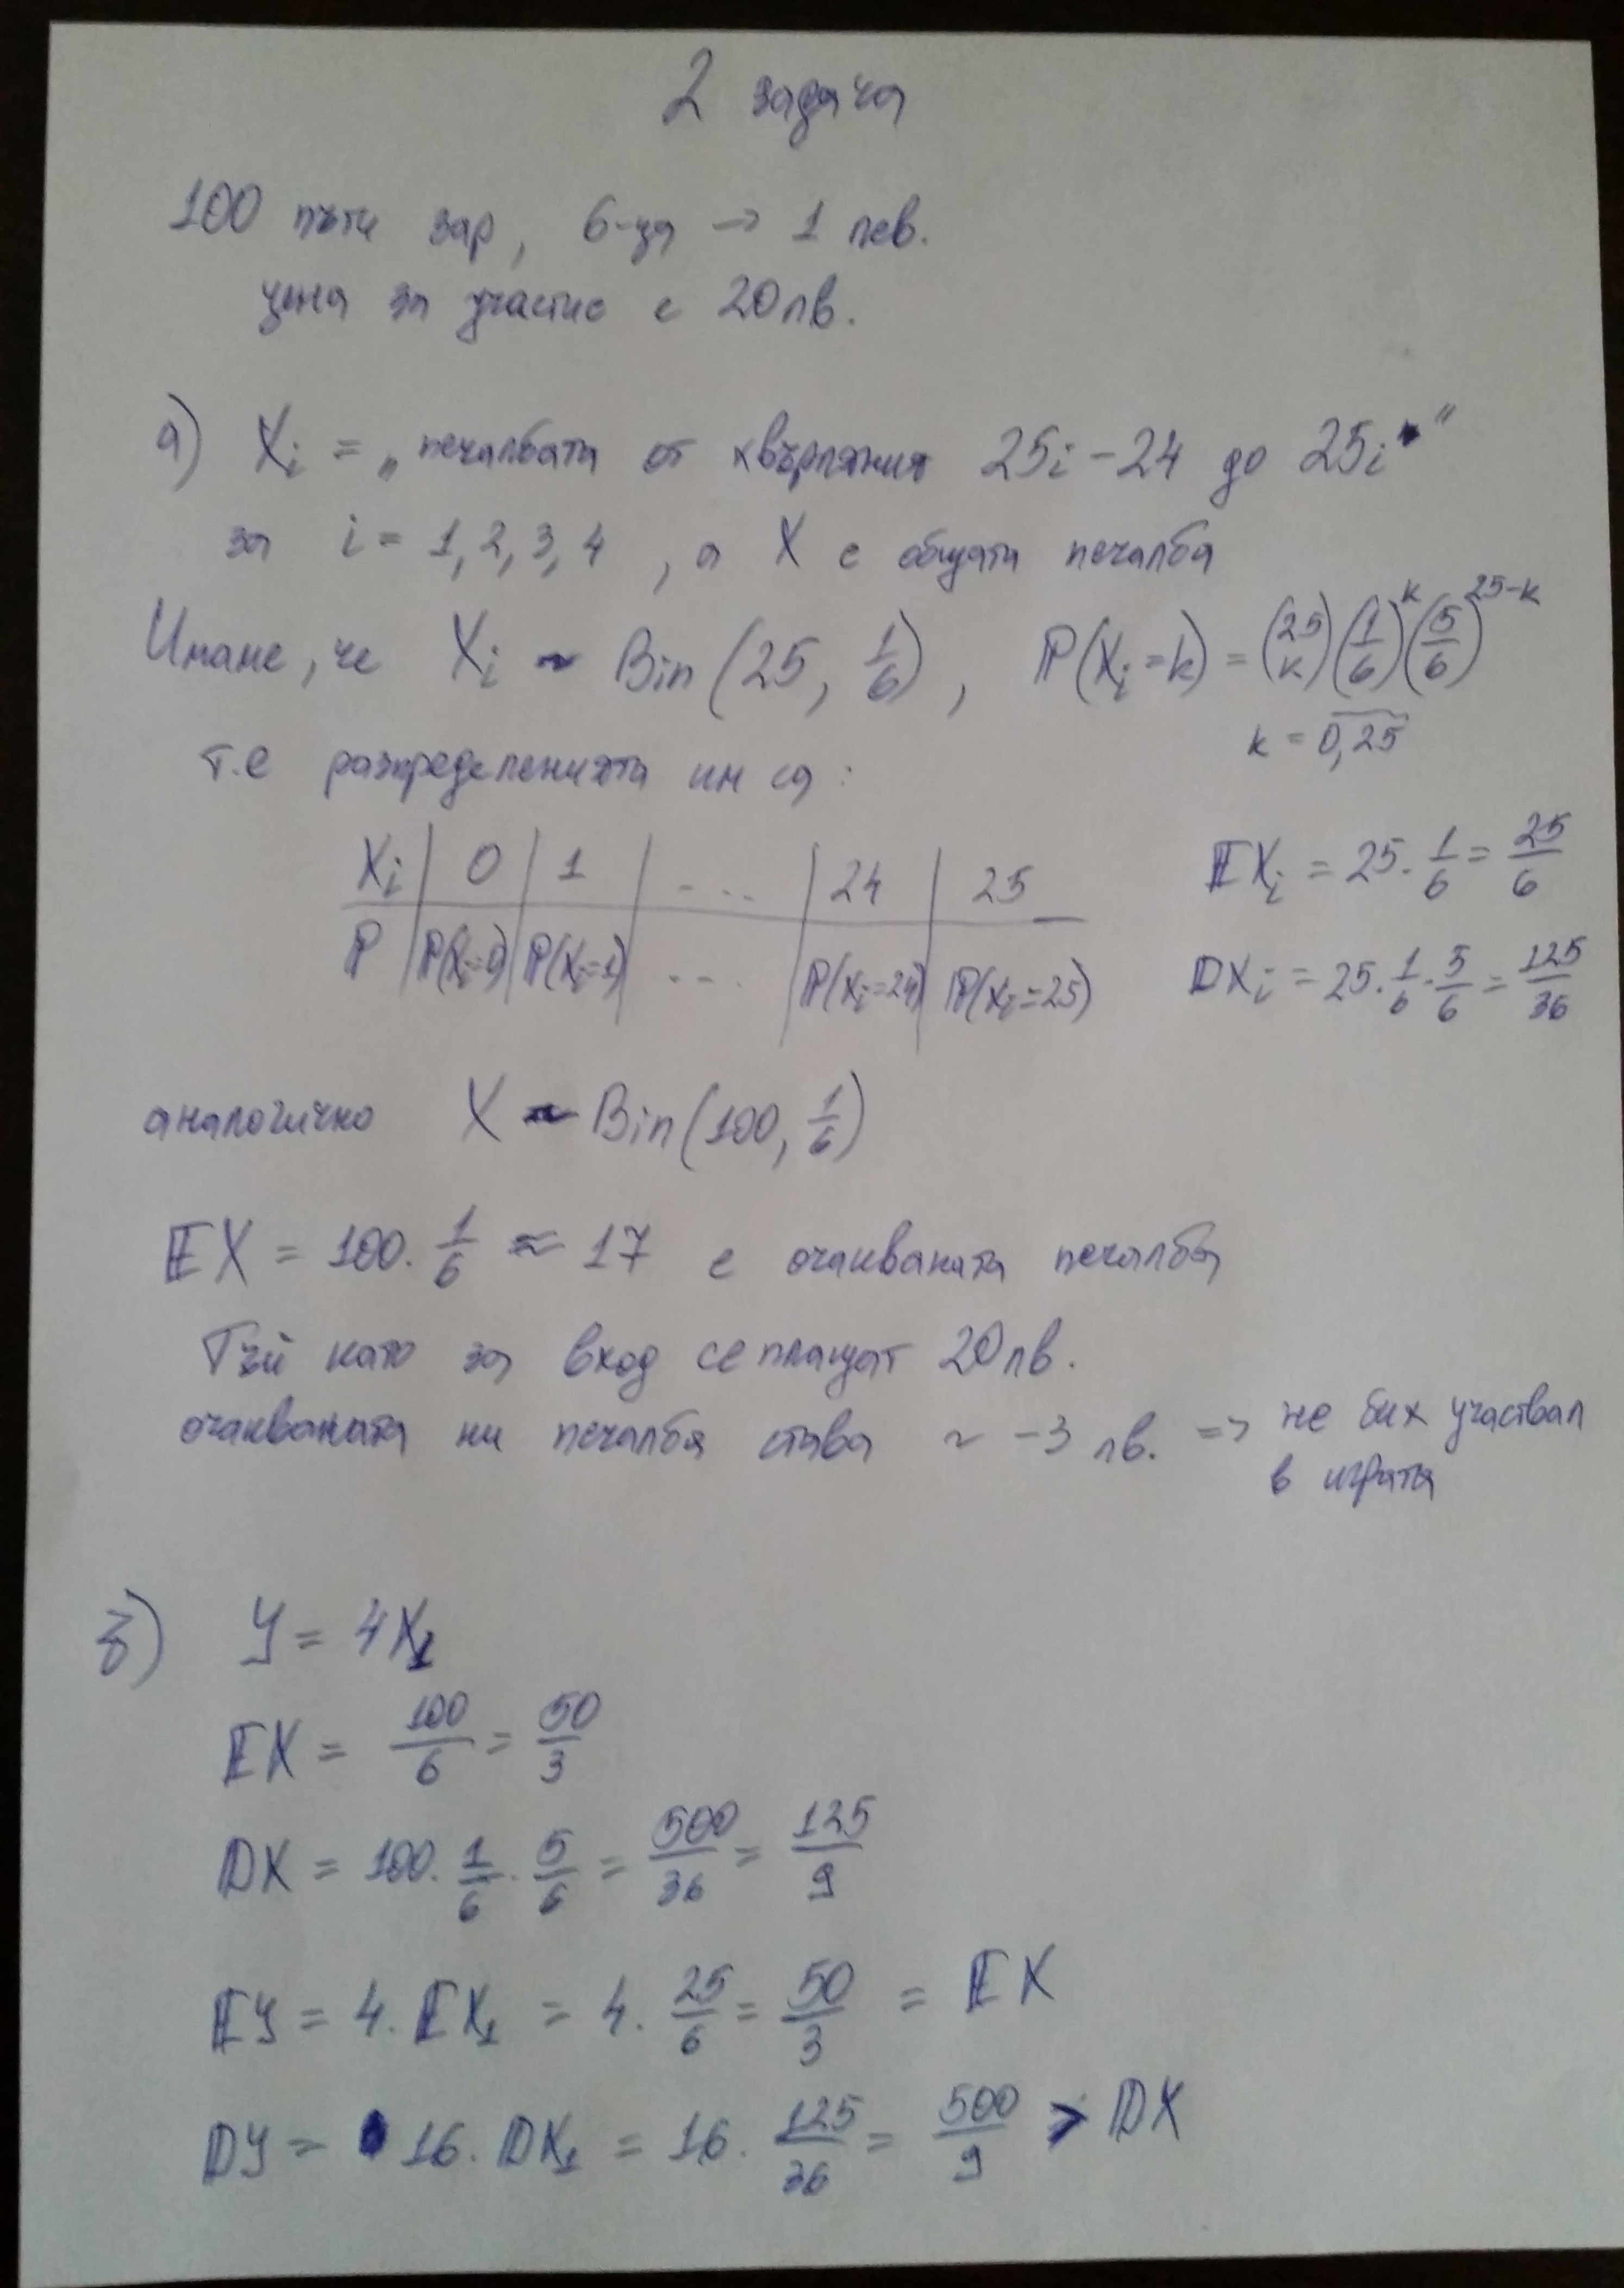 2 задача
100 пъти зар, 6-ца → 1 лев.
цена за участие е 20лв.
а) Xi = „печалбата от хвърляния 25i – 24 до 25i"
за i = 1, 2, 3, 4, а X е общата печалба
Имаме, че Xi ~ Bin(25, 1/6), P(Xi = k) = (25 k)(1/6)^k (5/6)^25-k
k = 0,25
т.е разпределенията им са:
Xi | 0 | 1 | ... | 24 | 25
P | P(Xi=0) | P(Xi=1) | ... | P(Xi=24) | P(Xi=25)
EXi = 25 . 1/6 = 25/6
DXi = 25 . 1/6 . 5/6 = 125/36
аналогично X ~ Bin(100, 1/6)
EX = 100 . 1/6 ≈ 17 е очакваната печалба
Тъй като за вход се плащат 20лв.
очакваната ни печалба става ~ -3 лв. => не бих участвал
в играта
б) Y = 4X1
EX = 100/6 = 50/3
DX = 100 . 1/6 . 5/6 = 500/36 = 125/9
EY = 4 . EX1 = 4 . 25/6 = 50/3 = EX
DY = 16 . DX1 = 16 . 125/36 = 500/9 > DX